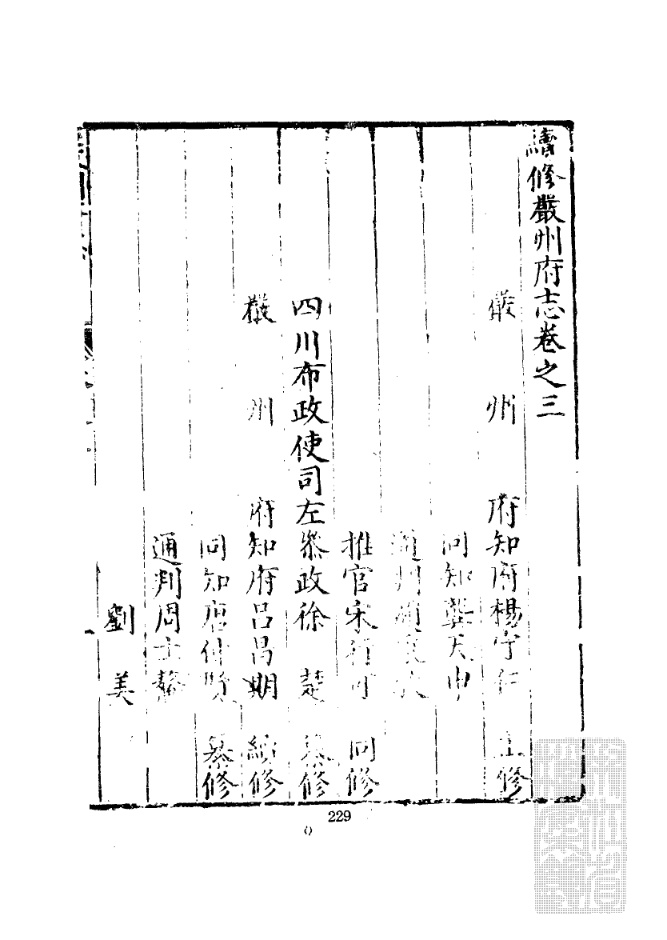 續修嚴州府志卷之三
嚴州府知府楊守仁 主修
同知龔天申
通判
推官宋 同修
四川布政使司左叅政徐楚 纂修
嚴州府知府呂昌期 續修
同知 纂修
通判周士
劉美
229